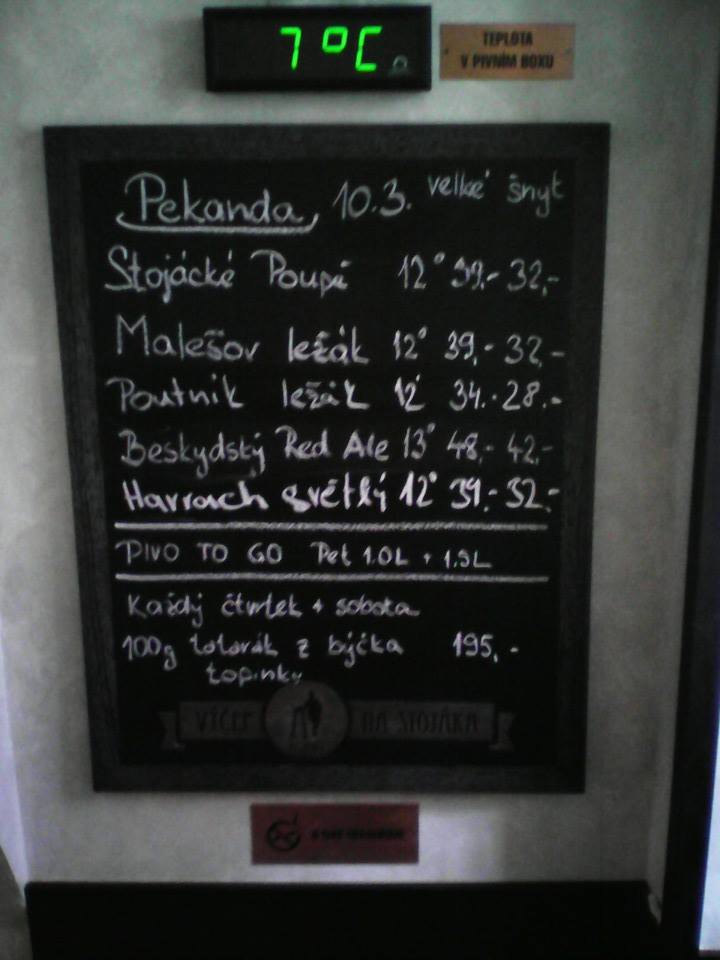 7°C
TEPLOTA
V PIVNÍM BOXU
Pekanda 10.3. velké šnyt
Stojácké Poupě 12° 39.- 32,-
Malešov ležák 12° 39,- 32,-
Poutník ležák 12° 34.- 28.-
Beskydský Red Ale 13° 48,- 42,-
Harrach světlý 12° 39.- 32.-
PIVO TO GO Pet 1.0L + 1.5L
Každý čtvrtek + sobota
100g tatarák z býčka 195,-
topinky
VÝČEP NA STOJÁKA